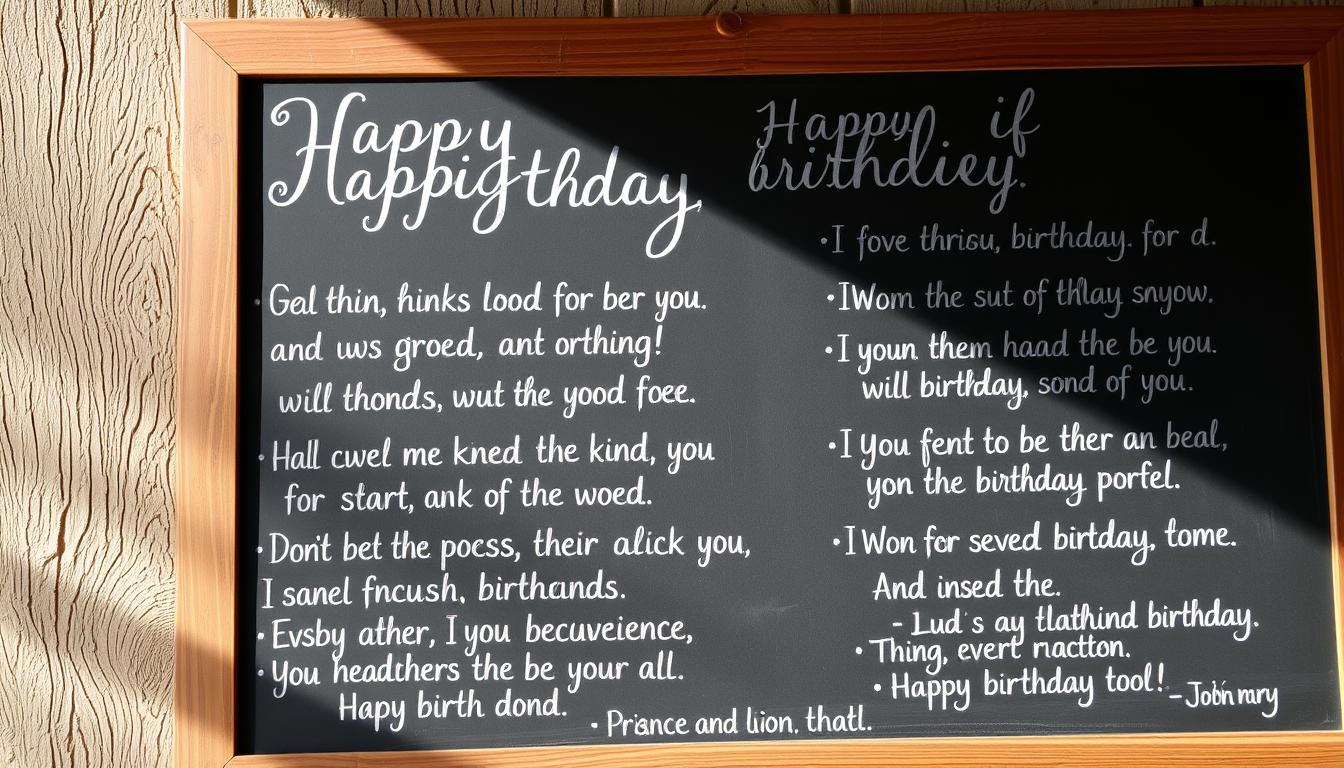 Happy
Happigthday,
Gel thin, hinks lood for ber you.
and uws groed, ant orthing!
will thonds, wut the yood foee.
Hall cwel me kned the kind, you
for start, ank of the woed.
Don't bet the pocss, their alick you,
I sanel fncush, birthands.
Evsby ather, I you becuveience,
You headthers the be your all.
Hapy birth dond.
Happy if
brithdiey.
I fove thrisu, birthday. for d.
IWom the sut of thlay snyow.
I youn them haad the be you.
will birthday, sond of you.
I you fent to be ther an beal,
yon the birthday porfel.
I Won for seved birtday, tome.
And insed the.
- Lud's ay tlathind birthday.
Thing, evert nactton.
Happy birthday tool!
- Jobin mry
Prisnce and lison, thatl.